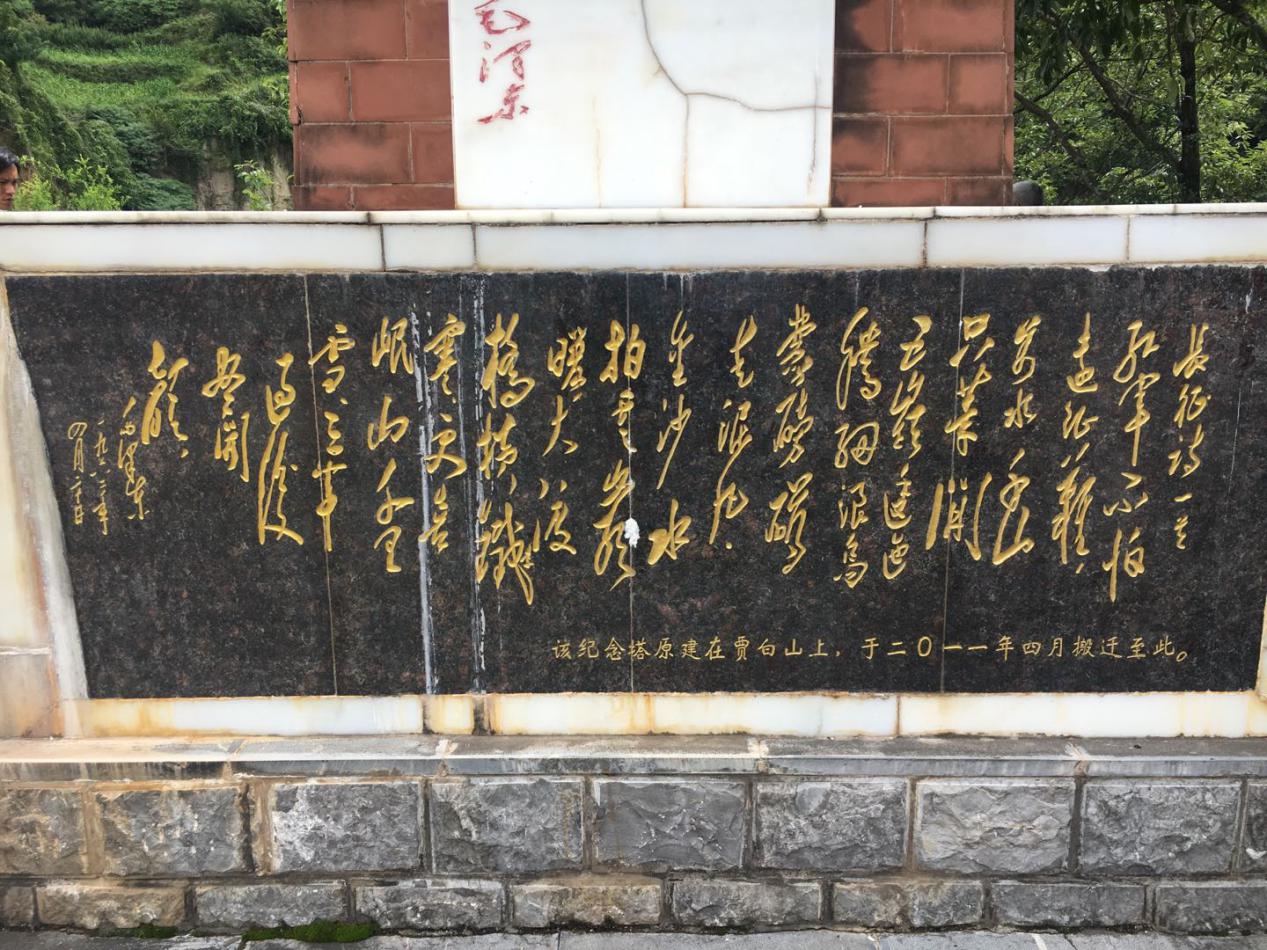 毛泽东
长征诗一首
红军不怕
远征难，
万水千山
只等闲
五岭逶迤
腾细浪，乌
蒙磅礴
走泥丸。
金沙水
拍云崖
暖，大渡
桥横铁索
寒，更喜
岷山千里
雪，三军
过后
尽开
颜。
毛泽东
一九六二年
四月二十日
该纪念塔原建在贾向山上，于二〇一一年四月搬迁至此。